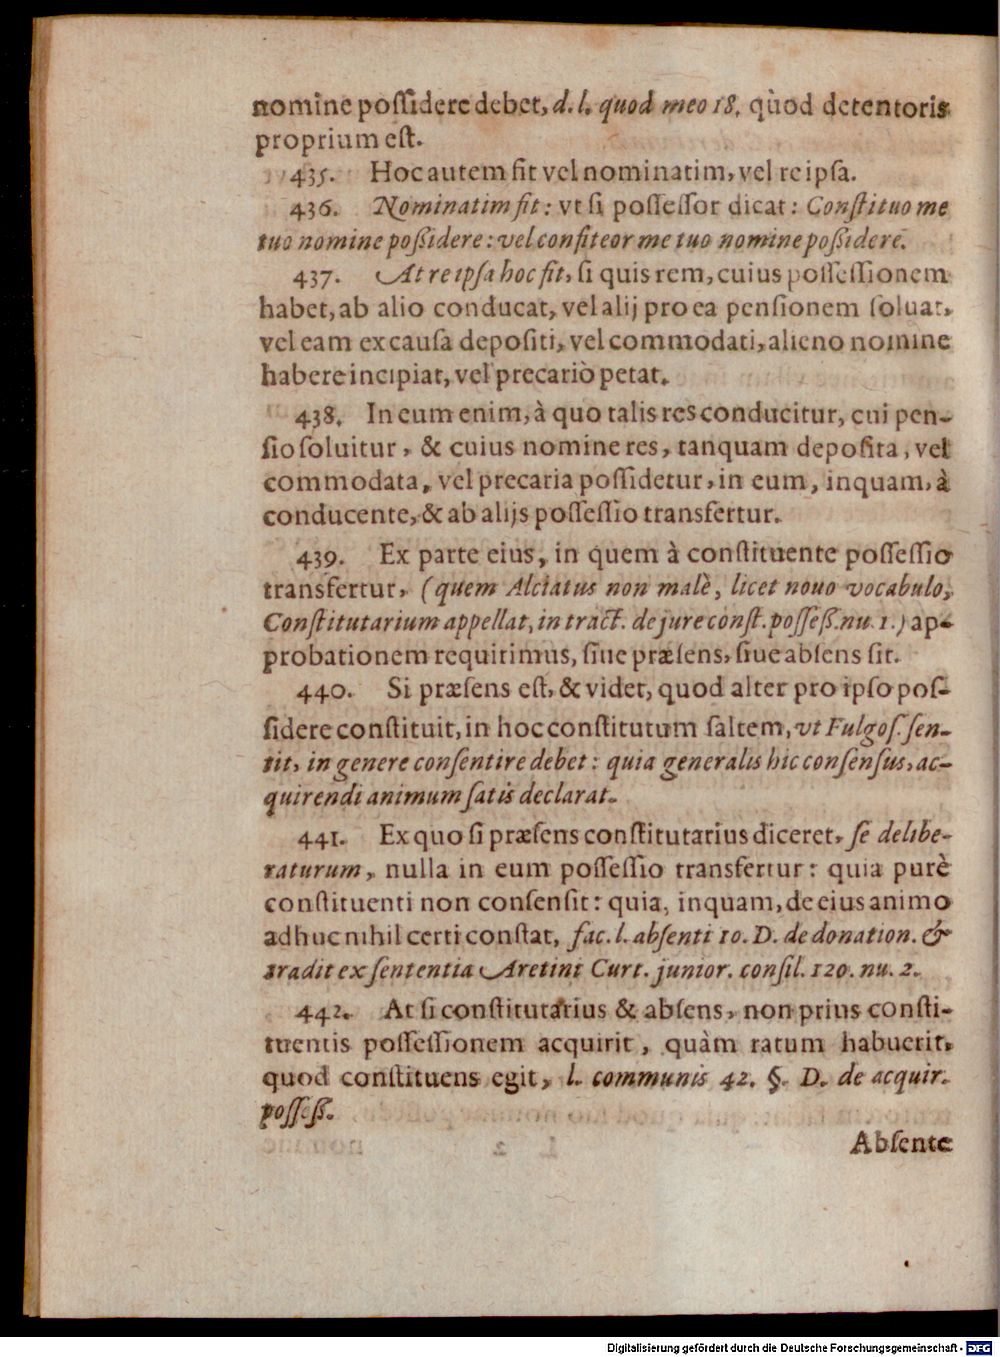 nomine poſſidere debet, d. l. quod meo 18. quòd detentoris
proprium est.
435. Hoc autem fit vel nominatim, vel re ipſa.
436. Nominatim fit: vt si poſſeſſor dicat: Conſtituo me
tuo nomine poßidere: vel confiteor me tuo nomine poßidere.
437. At re ipſa hoc fit, ſi quis rem, cuius poſſeſſionem
habet, ab alio conducat, vel alij pro ea penſionem ſoluat,
vel eam ex cauſa depoſiti, vel commodati, alieno nomine
habere incipiat, vel precariò petat.
438. In eum enim, à quo talis res conducitur, cui pen-
ſio ſoluitur, & cuius nomine res, tanquam depoſita, vel
commodata, vel precaria poſſidetur, in eum, inquam, à
conducente, & ab alijs poſſeſſio transfertur.
439. Ex parte eius, in quem à conſtituente poſſeſſio
transfertur, (quem Alciatus non malè, licet nouo vocabulo,
Conſtitutarium appellat, in tract. de jure conſt. poſſeß. nu. 1.) ap-
probationem requirimus, ſiue præſens, ſiue abſens ſit.
440. Si præſens eſt, & videt, quod alter pro ipſo poſ-
ſidere conſtituit, in hoc conſtitutum ſaltem, vt Fulgoſ. ſen-
tit, in genere conſentire debet: quia generalis hic conſenſus, ac-
quirendi animum ſatis declarat.
441. Ex quo ſi præſens conſtitutarius diceret, ſe delibe-
raturum, nulla in eum poſſeſſio transfertur: quia purè
conſtituenti non conſenſit: quia, inquam, de eius animo
adhuc nihil certi conſtat, fac. l. abſenti 10. D. de donation. &
tradit ex ſententia Aretini Curt. junior. conſil. 120. nu. 2.
442. At ſi conſtitutarius & abſens, non prius conſti-
tuentis poſſeſſionem acquirit, quàm ratum habuerit,
quod conſtituens egit, l. communis 42. §. D. de acquir.
poſſeß.
Abſente
Digitalisierung gefördert durch die Deutsche Forschungsgemeinschaft - DFG